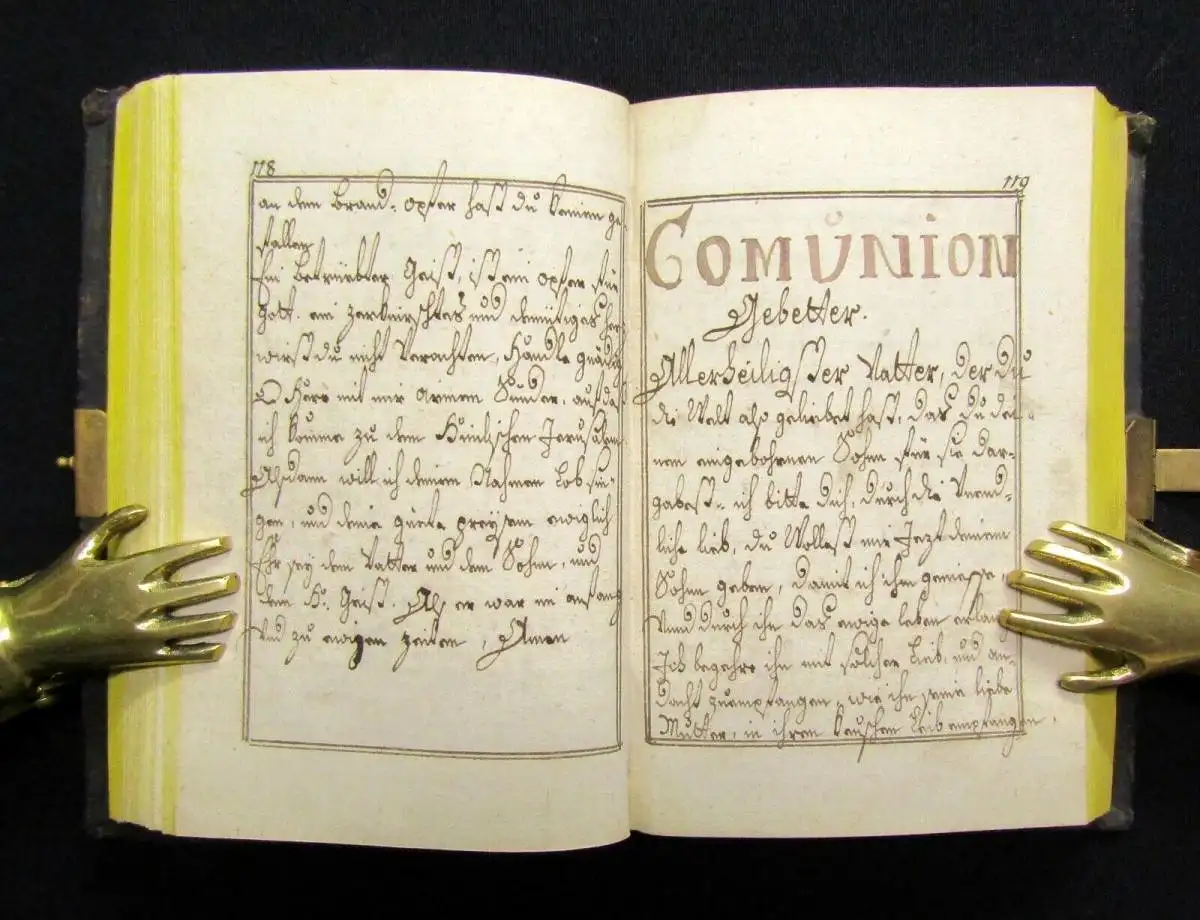 118
an dem brand: opfer hast du keinen ge-
fallen
Ein betrüebter Geist, ist ein opfer für
Gott. ein zerknirschtes und demütiges herz
wirst du nicht Verachten, Handle gnädig
O Herr mit mir armen Sünder, auf das
ich komme zu dem Himlischen Jerusalem
Alsdann will ich deinem Nahmen lob sin-
gen, und deine güete preysen ewiglich
Ehr sey dem Vatter und dem Sohne, und
dem H: Geist. Als er war im anfang
Und zu ewigen zeiten, Amen
119
COMŬNION
Gebetter.
Allerheiligster Vatter, der du
die Welt also geliebet hast, das du dei-
nen eingebohrnen Sohn für sie dar-
gabest. ich bitte dich, durch die Unend-
liche lieb, du Wollest mir Jezt deinen
Sohn geben, damit ich ihn geniesse
Und durch ihn das ewige leben erlang
Ich begehre ihn mit solcher lieb, und an-
dacht zuempfangen, wie ihn seine liebe
Mutter, in ihren keuschen leib empfangen.